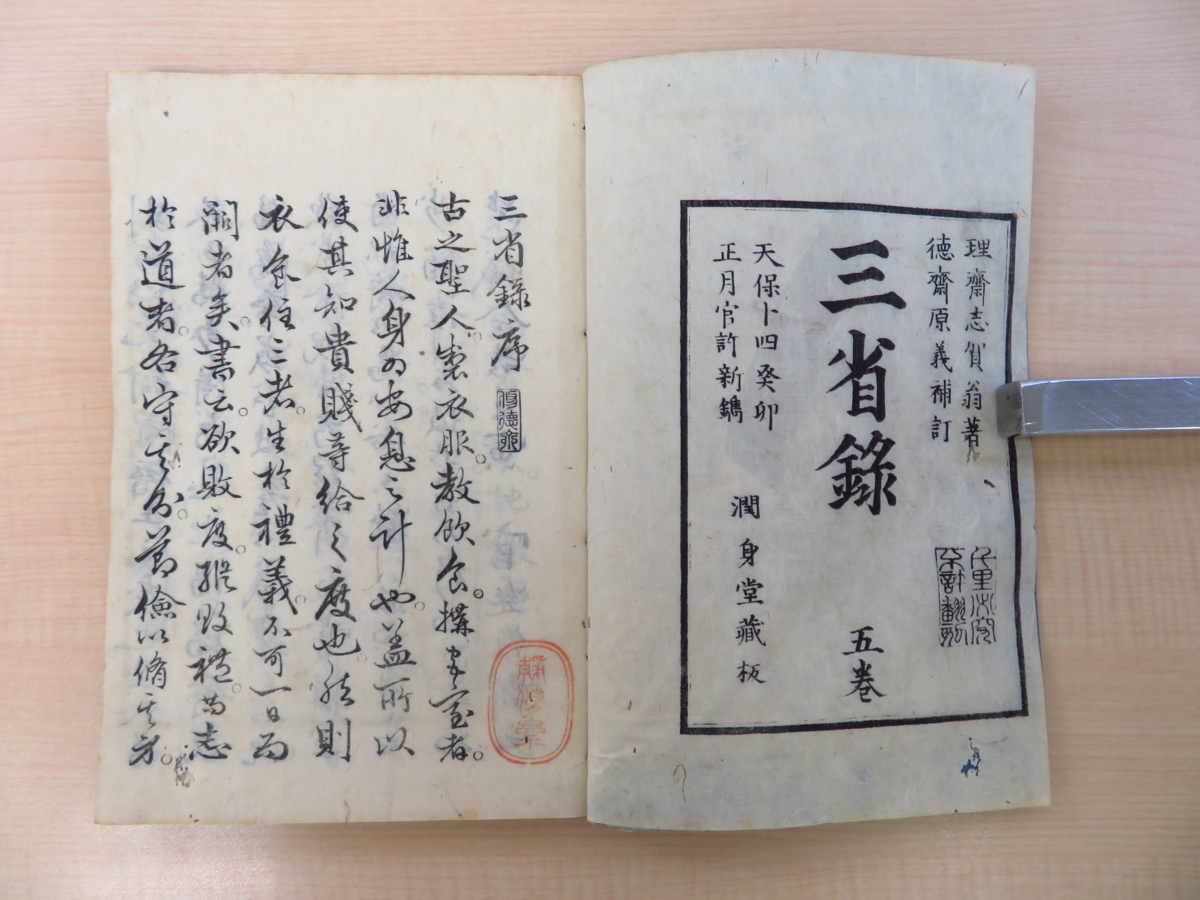 理齋志賀翁著
德齋原義補訂
三省錄
五巻
天保十四癸卯
正月官許新鐫
潤身堂藏板
千里必究
不許翻刻
三省錄序
古之聖人製衣服教飲食搆宮室者
非惟人身の安息之計也盖所以
使其知貴賤等給之度也然則
衣食住三者生於禮義不可一日而
闕者矣書云欲敗度縱敗禮苟志
於道者各守其分節儉以脩其身